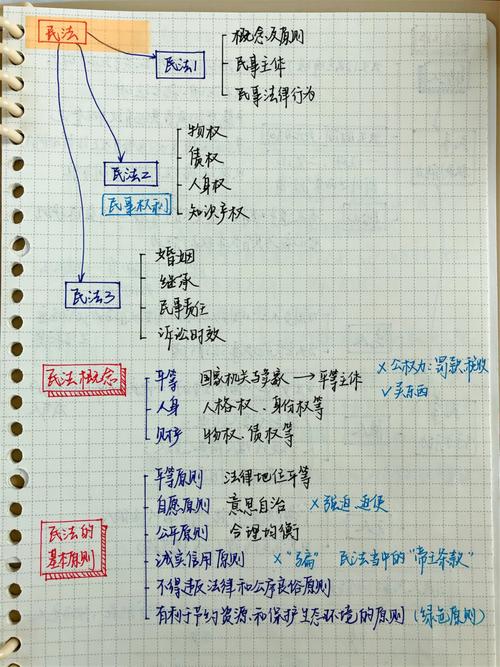 民法
民法1
概念及原则
民事主体
民事法律行为
民法2
民事权利
物权
债权
人身权
知识产权
民法3
婚姻
继承
民事责任
诉讼时效
民法概念
平等 国家机关与卖家 → 平等主体 ×公权力:罚款、税收
✓买东西
人身 人格权、身份权等
财产 物权、债权等
民法的
基本原则
平等原则 法律地位平等
自愿原则 意思自治 ×强迫、迫使
公平原则 合理均衡
诚实信用原则 ×"骗" 民法当中的"帝王条款"
不得违反法律和公序良俗原则
有利于节约资源和保护生态环境的原则(绿色原则)